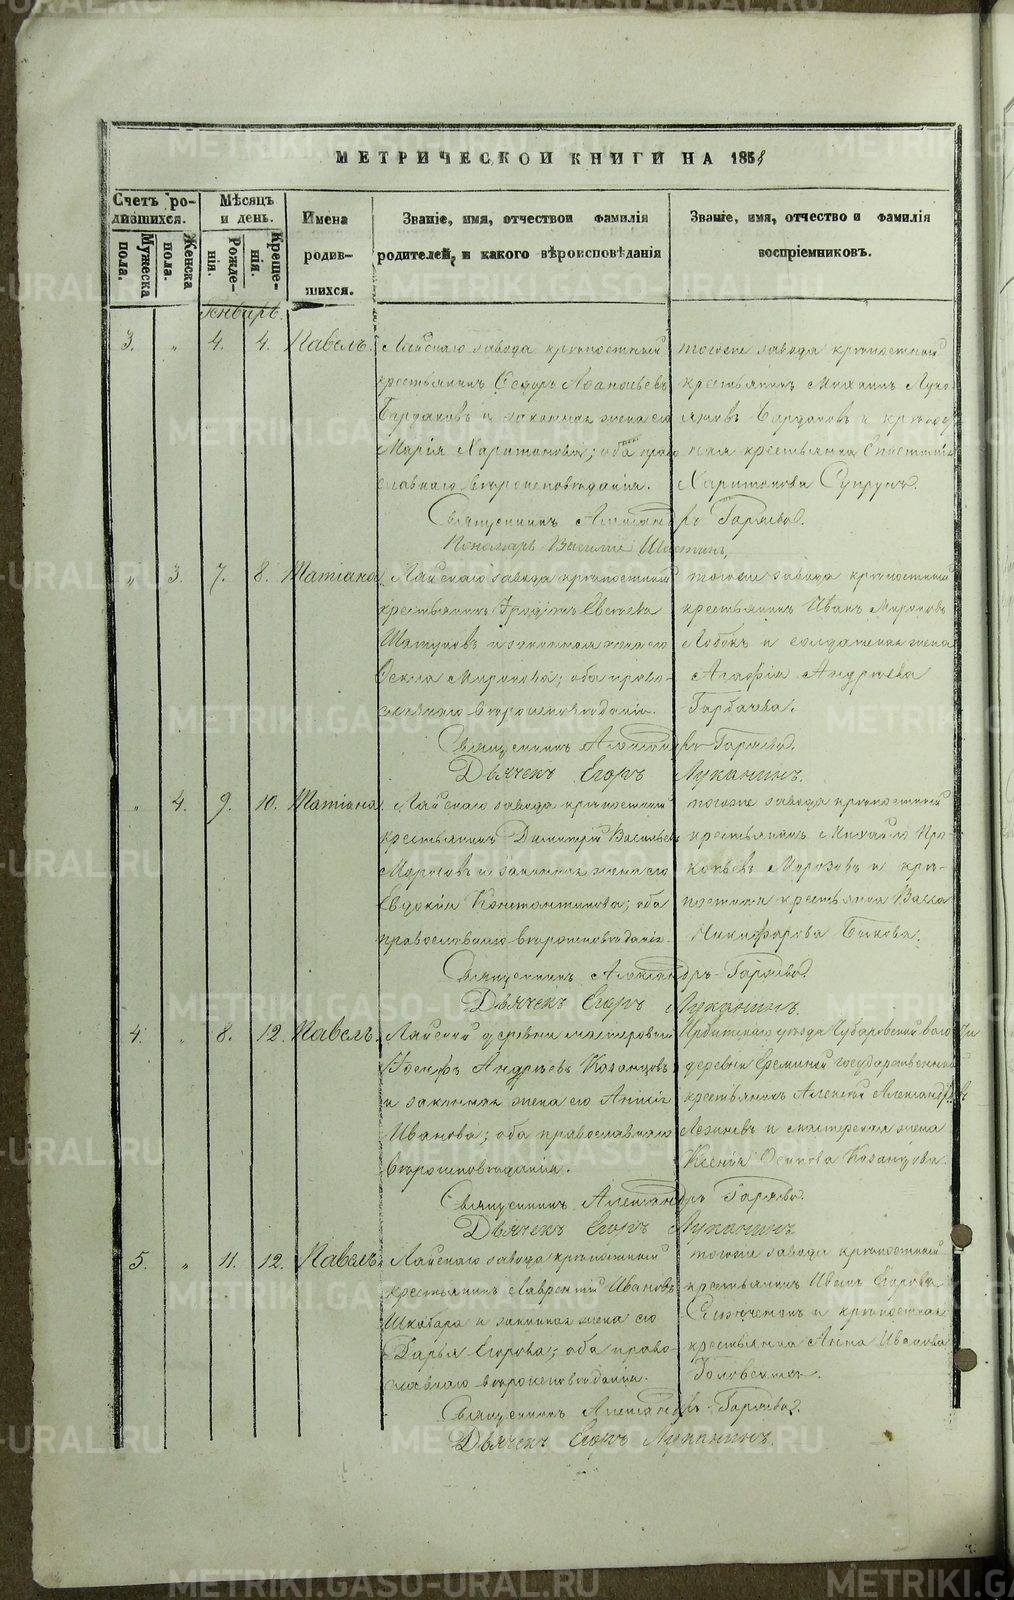 МЕТРИЧЕСКОЙ КНИГИ НА 1858
Счетъ родившихся.
Мужеска пола.
Женска пола.
Мѣсяцъ и день.
Рожденія.
Крещенія.
Имена родившихся.
Званіе, имя, отчество и фамилія родителей, и какого вѣроисповѣданія
Званіе, имя, отчество и фамилія воспріемниковъ.
Январь.
3. „ 4. 4. Павелъ.
Лайскаго завода крѣпостный
крестьянинъ Ѳедоръ
и законная жена его
Марія Харитонова; оба право
славнаго вѣроисповѣданія.
тогоже завода крѣпостный
крестьянинъ Михаилъ Лукояновъ и крѣпост
ная крестьянка
Харитонова Супрунъ.
Священникъ Александръ Гаряевъ.
Пономарь Василій
„ 3. 7. 8. Татіана
Лайскаго завода крѣпостный
крестьянинъ
и законная жена его
Миронова; оба право-
славнаго вѣроисповѣданія.
тогоже завода крѣпостный
крестьянинъ Иванъ Мироновъ
и солдатская жена
Агафія Андреева
Горбачева.
Священникъ Александръ Гаряевъ.
Дьячекъ Егоръ Луканинъ.
„ 4. 9. 10. Татіана
Лайскаго завода крѣпостный
крестьянинъ Димитрій Васильевъ
Морозовъ и законная жена его
Евдокія Константинова; оба
православнаго вѣроисповѣданія.
тогоже завода крѣпостный
крестьянинъ Михайло Про-
копьевъ Морозовъ и крѣ-
постная крестьянка Васса
Никифорова Быкова.
Священникъ Александръ Гаряевъ.
Дьячекъ Егоръ Луканинъ.
4. „ 8. 12. Павелъ.
Лайской деревни мастеровой
Іосифъ Андреевъ Казанцовъ
и законная жена его
Иванова; оба православнаго
вѣроисповѣданія.
Ирбитскаго уѣзда Чубаровской волости
деревни Ереминой государственный
крестьянинъ Алексѣй Александровъ
и мастерская жена
Ксенія Осипова Казанцова.
Священникъ Александръ Гаряевъ.
Дьячекъ Егоръ Луканинъ
5. „ 11. 12. Павелъ.
Лайскаго завода крѣпостный
крестьянинъ Лаврентій Ивановъ
и законная жена его
Дарья Егорова; оба право-
славнаго вѣроисповѣданія.
тогоже завода крѣпостный
крестьянинъ Иванъ Егоровъ
и крѣпостная
крестьянка Анна Иванова
Священникъ Александръ Гаряевъ.
Дьячекъ Егоръ Луканинъ.
METRIKI.GASO-URAL.RU